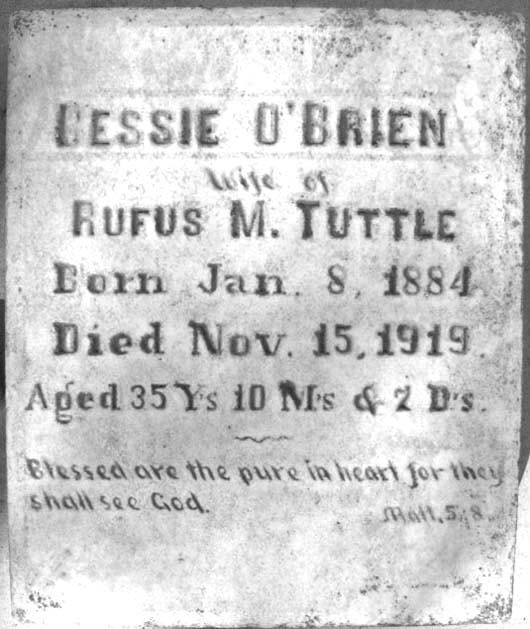 BESSIE O'BRIEN
Wife of
RUFUS M. TUTTLE
Born Jan. 8, 1884
Died Nov. 15, 1919.
Aged 35 Ys 10 M's & 7 D's.
Blessed are the pure in heart for they
shall see God.
Matt. 5; 8.